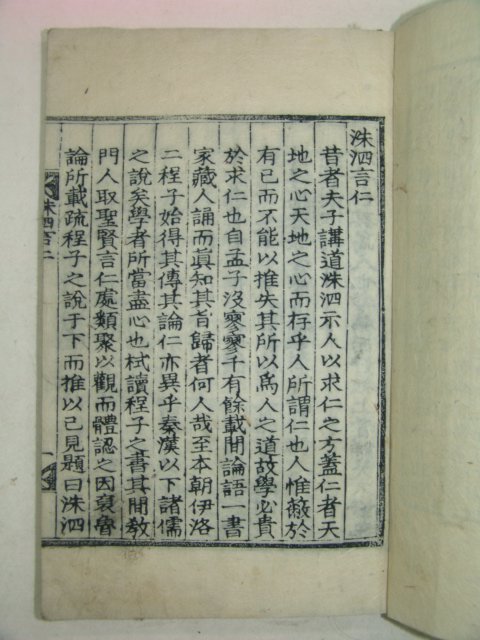 洙泗言仁
昔者夫子講道洙泗示人以求仁之方蓋仁者天
地之心天地之心而存乎人所謂仁也人惟蔽於
有己而不能以推失其所以爲人之道故學必貴
於求仁也自孟子沒寥寥千有餘載間論語一書
家藏人誦而眞知其旨歸者何人哉至本朝伊洛
二程子始得其傳其論仁亦異乎秦漢以下諸儒
之說矣學者所當盡心也栻讀程子之書其間敎
門人取聖賢言仁處類聚以觀而體認之因裒魯
論所載疏程子之說于下而推以己見題曰洙泗
洙泗言仁
一